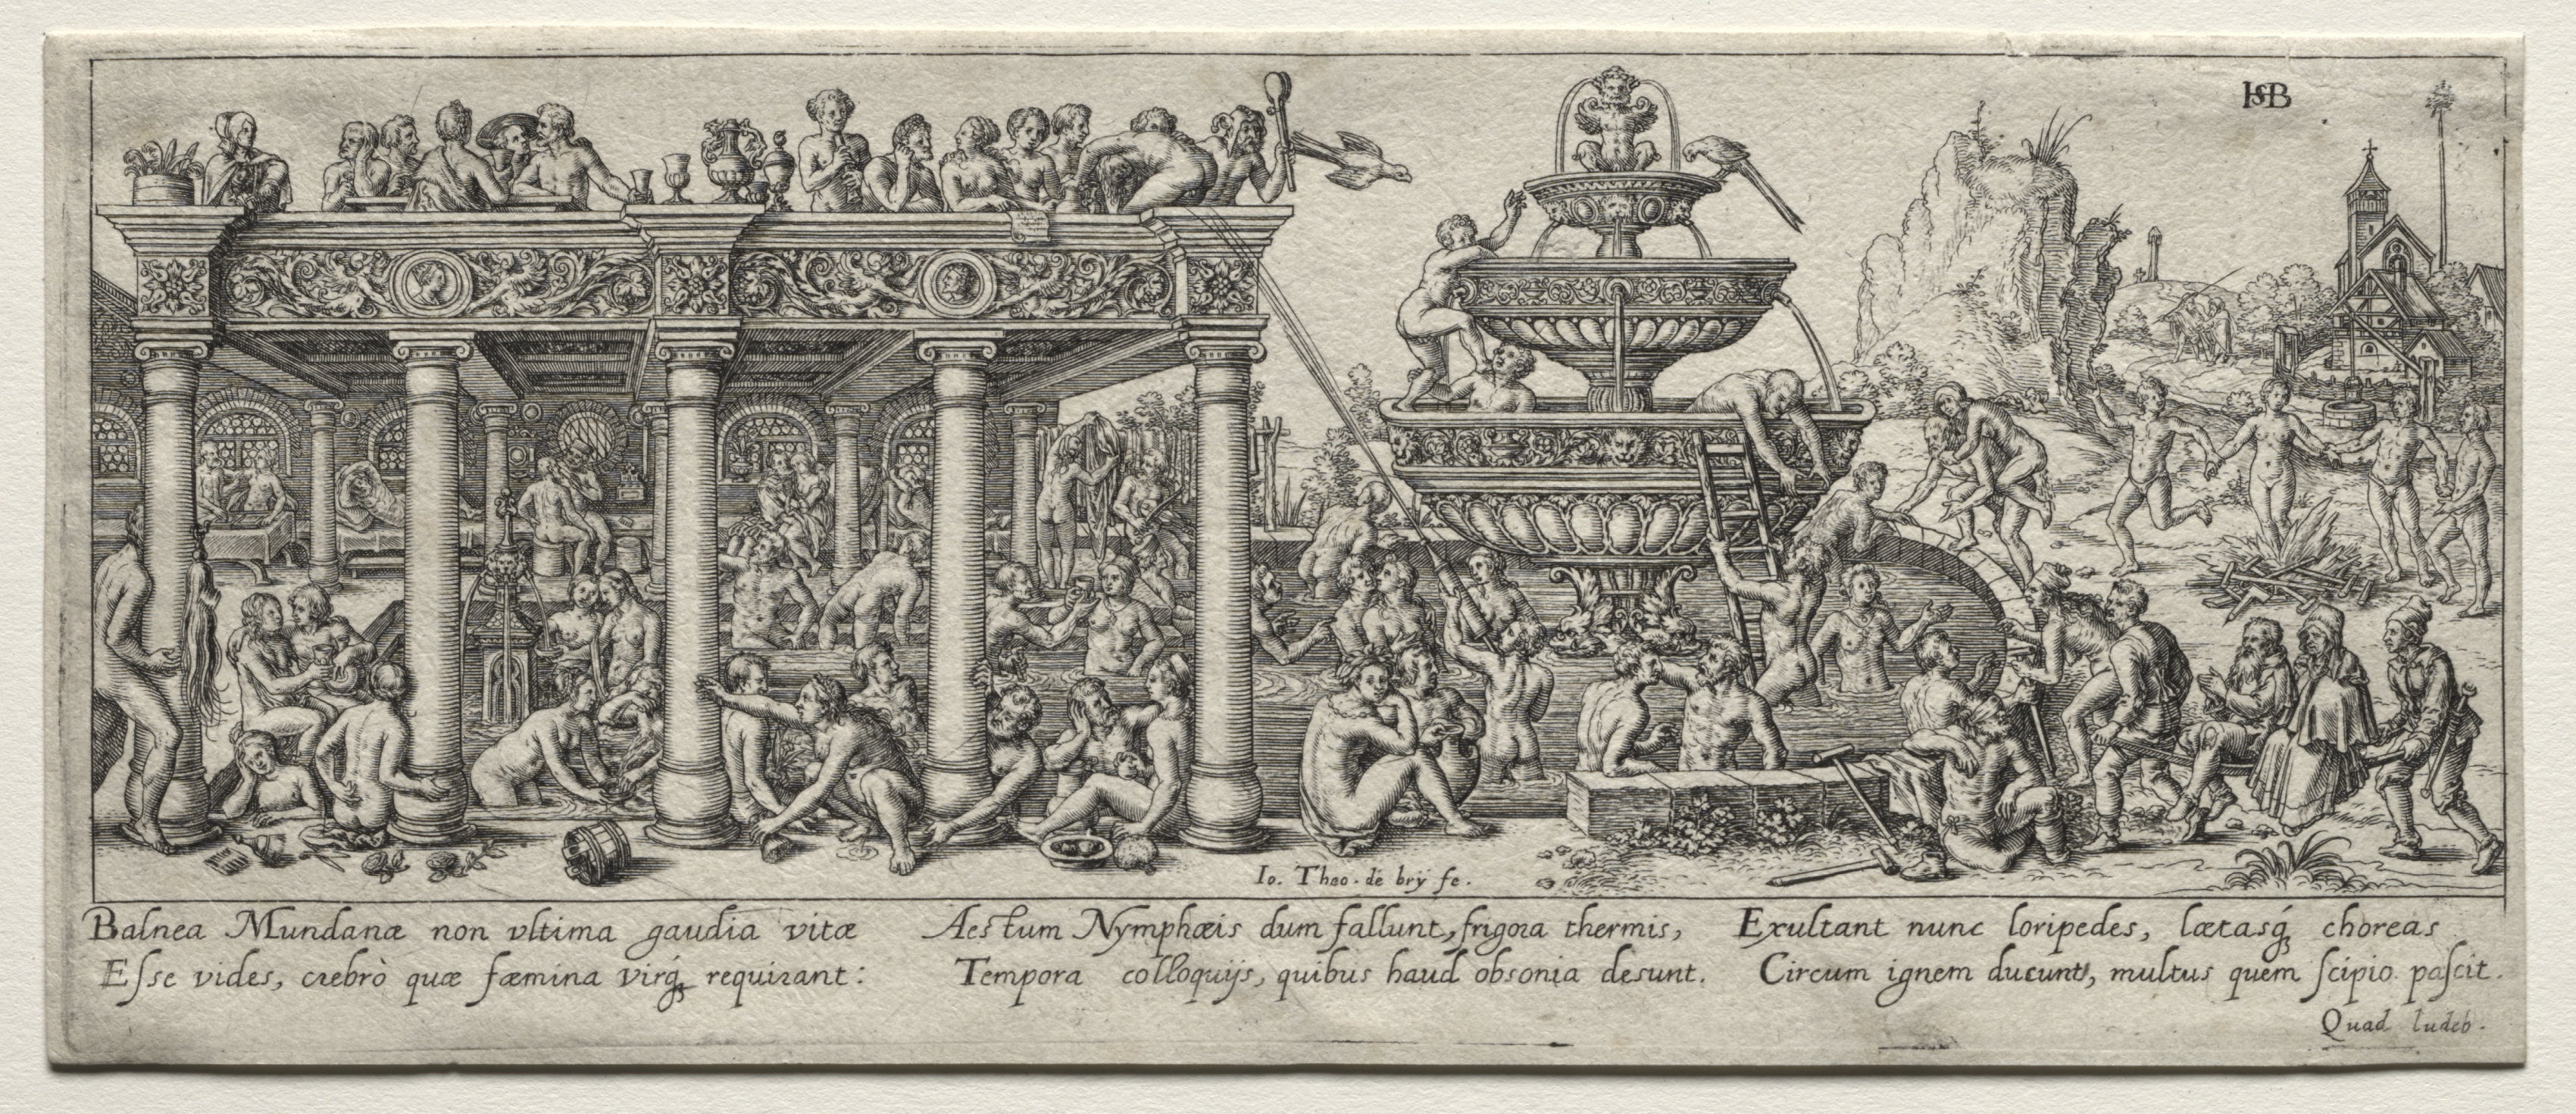 HSB
Io. Theo. de brÿ fe.
Balnea Mundanæ non vltima gaudia vitæ
Esse vides, crebrò quæ fæmina virq́ requirant:
Aestum Nymphæis dum fallunt, frigora thermis,
Tempora colloquijs, quibus haud obsonia desunt.
Exultant nunc loripedes, lætasq́ choreas
Circum ignem ducunt, multus quem scipio pascit.
Quad ludeb.